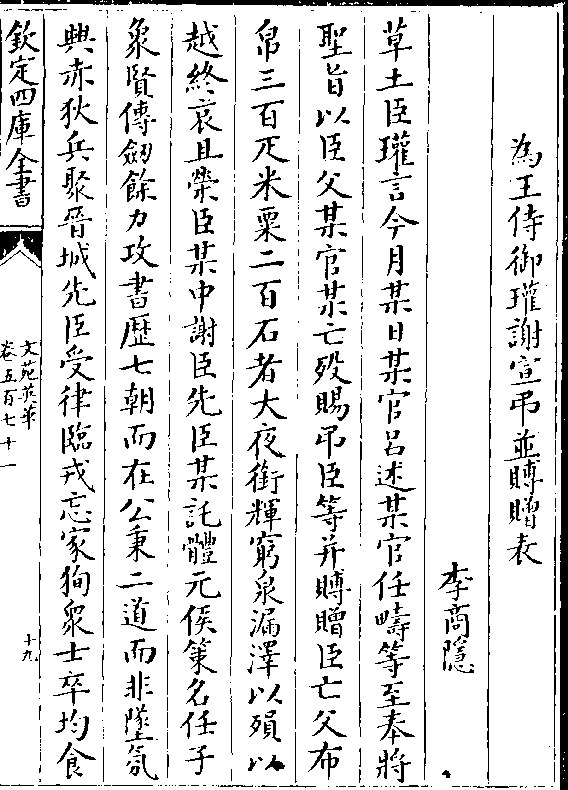 為王侍御瓘謝宣弔並賻贈表
李商隱
草土臣瓘言今月某日某官呂述某官任疇等至奉將
聖旨以臣父某官某亡歿賜弔臣等并賻贈臣亡父布
帛三百疋米粟二百石者大夜銜輝窮泉漏澤以殞以
越終哀且榮臣某中謝臣先臣某託體元侯策名任子
象賢傳劒餘力攻書歷七朝而在公秉二道而非墜氛
興赤狄兵聚晉城先臣受律臨戎忘家狥衆士卒均食
欽定四庫全書
文苑英華
卷五百七十一
十九